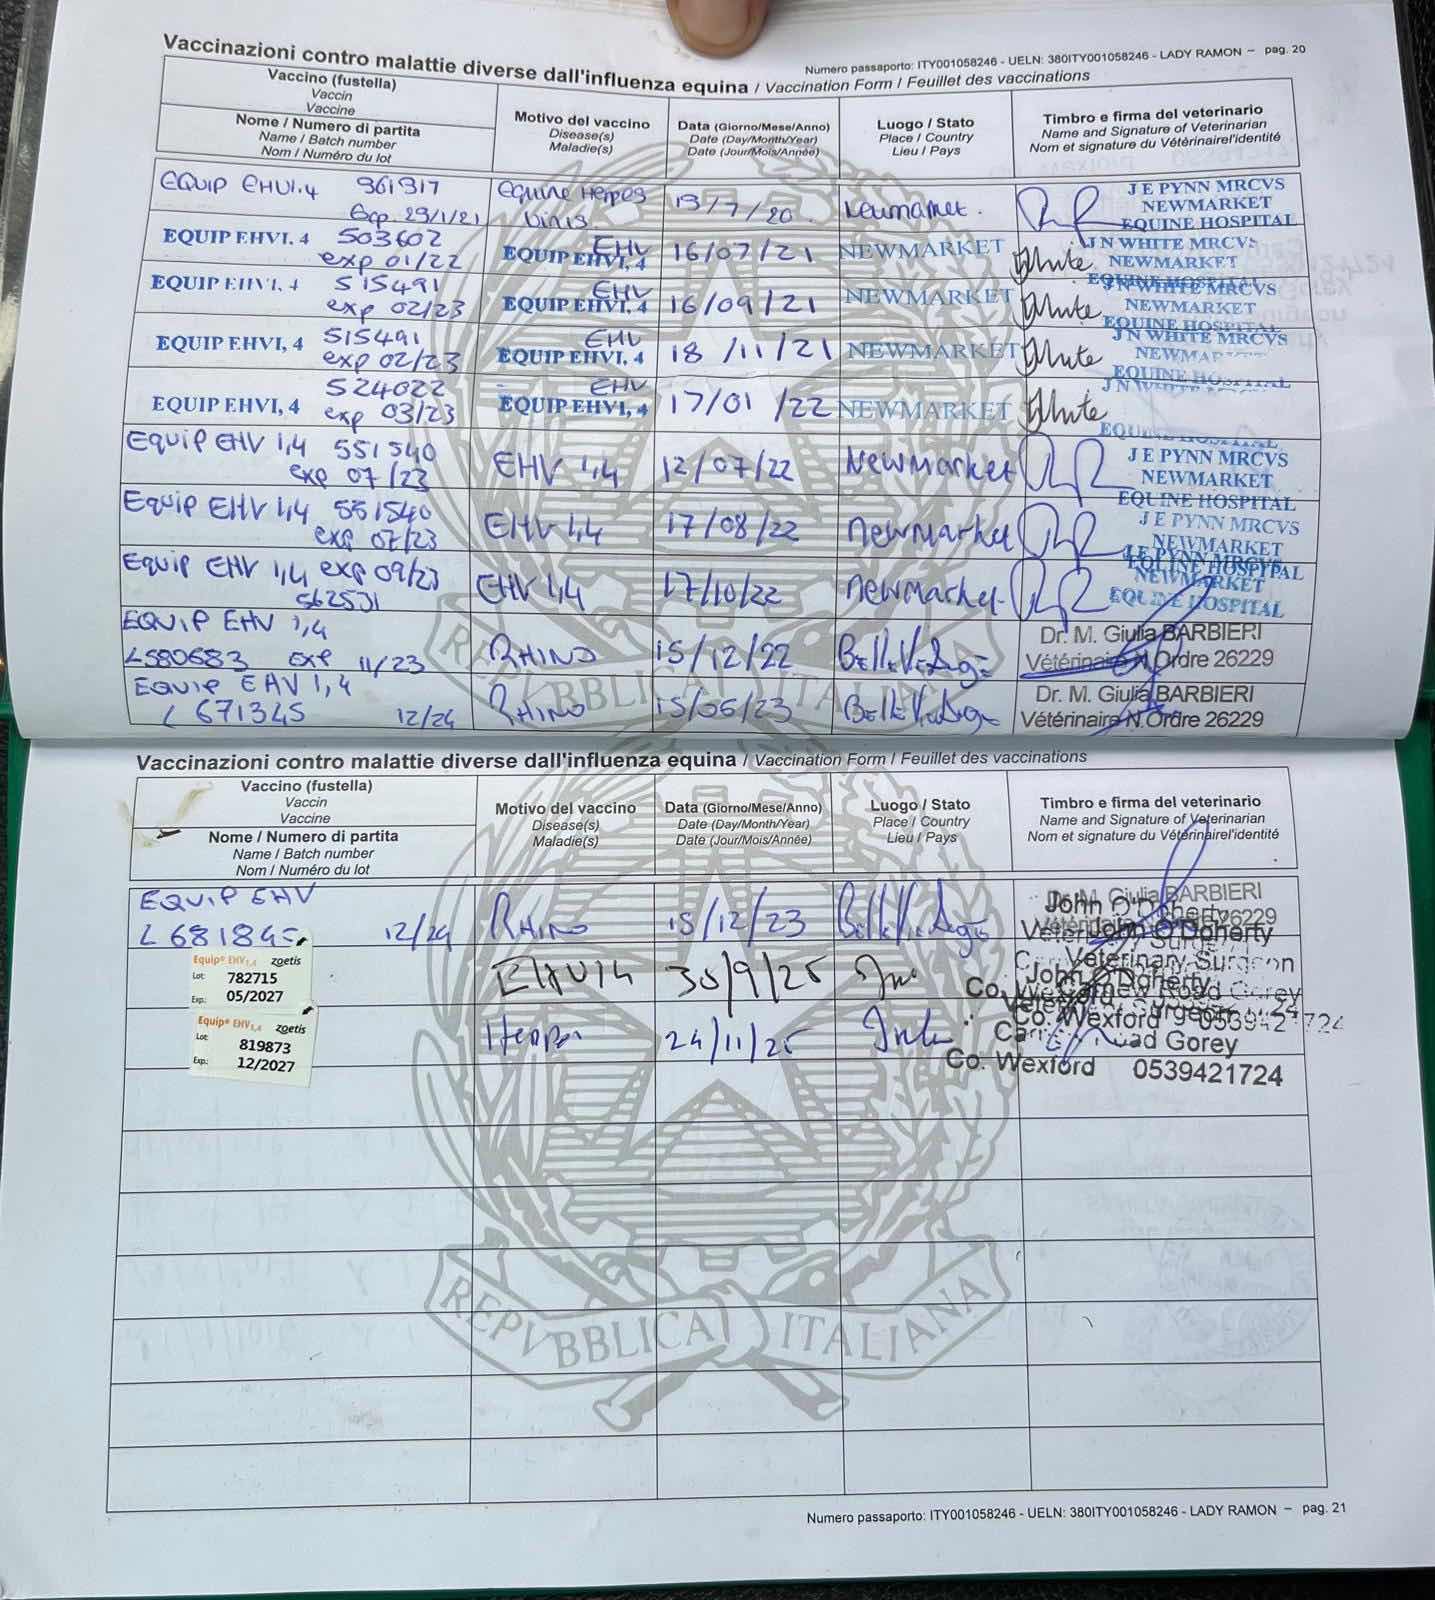 Vaccinazioni contro malattie diverse dall'influenza equina / Vaccination Form / Feuillet des vaccinations
Numero passaporto: ITY001058246 - UELN: 380ITY001058246 - LADY RAMON – pag. 20
Vaccino (fustella)
Vaccin
Vaccine
Nome / Numero di partita
Name / Batch number
Nom / Numéro du lot
Motivo del vaccino
Disease(s)
Maladie(s)
Data (Giorno/Mese/Anno)
Date (Day/Month/Year)
Date (Jour/Mois/Année)
Luogo / Stato
Place / Country
Lieu / Pays
Timbro e firma del veterinario
Name and Signature of Veterinarian
Nom et signature du Vétérinairel'identité
EQUIP EHV1.4 361317
Exp. 29/1/21
Equine Herpes
Virus
13/7/20
J E PYNN MRCVS
NEWMARKET
EQUINE HOSPITAL
EQUIP EHVI, 4 503602
exp 01/22
EHV
EQUIP EHVI, 4
16/07/21
NEWMARKET
White
J N WHITE MRCVS
NEWMARKET
EQUINE HOSPITAL
EQUIP EHVI, 4 515491
exp 02/23
EHV
EQUIP EHVI, 4
16/09/21
NEWMARKET
White
J N WHITE MRCVS
NEWMARKET
EQUINE HOSPITAL
EQUIP EHVI, 4 515491
exp 02/23
EHV
EQUIP EHVI, 4
18/11/21
NEWMARKET
White
J N WHITE MRCVS
NEWMARKET
EQUINE HOSPITAL
EQUIP EHVI, 4 524022
exp 03/23
EHV
EQUIP EHVI, 4
17/01/22
NEWMARKET
White
J N WHITE
Equip EHV 1,4 551540
exp 07/23
EHV 1,4
12/07/22
Newmarket
J E PYNN MRCVS
NEWMARKET
EQUINE HOSPITAL
Equip EHV 1,4 551540
exp 07/23
EHV 1,4
17/08/22
Newmarket
J E PYNN MRCVS
NEWMARKET
EQUINE HOSPITAL
Equip EHV 1,4 exp 09/23
562531
EHV 1,4
17/10/22
Newmarket
J E PYNN MRCVS
NEWMARKET
EQUINE HOSPITAL
EQUIP EHV 1,4
L580683 EXP 11/23
RHINO
15/12/22
Dr. M. Giulia BARBIERI
Vétérinaire N.Ordre 26229
EQUIP EHV 1,4
L 671345 12/24
RHINO
15/06/23
Dr. M. Giulia BARBIERI
Vétérinaire N.Ordre 26229
REPVBBLICA ITALIANA
Vaccinazioni contro malattie diverse dall'influenza equina / Vaccination Form / Feuillet des vaccinations
Vaccino (fustella)
Vaccin
Vaccine
Nome / Numero di partita
Name / Batch number
Nom / Numéro du lot
Motivo del vaccino
Disease(s)
Maladie(s)
Data (Giorno/Mese/Anno)
Date (Day/Month/Year)
Date (Jour/Mois/Année)
Luogo / Stato
Place / Country
Lieu / Pays
Timbro e firma del veterinario
Name and Signature of Veterinarian
Nom et signature du Vétérinairel'identité
EQUIP EHV
L 68184 12/24
RHINO
15/12/23
Dr. M. Giulia BARBIERI
26229
Equip® EHV1,4 zoetis
Lot: 782715
Exp.: 05/2027
EHV14
30/9/25
John O'Doherty
Veterinary Surgeon
Carnew Road Gorey
Co. Wexford 0539421724
Equip® EHV1,4 zoetis
Lot: 819873
Exp.: 12/2027
24/11/25
John O'Doherty
Veterinary Surgeon
Carnew Road Gorey
Co. Wexford 0539421724
REPVBBLICA ITALIANA
Numero passaporto: ITY001058246 - UELN: 380ITY001058246 - LADY RAMON – pag. 21